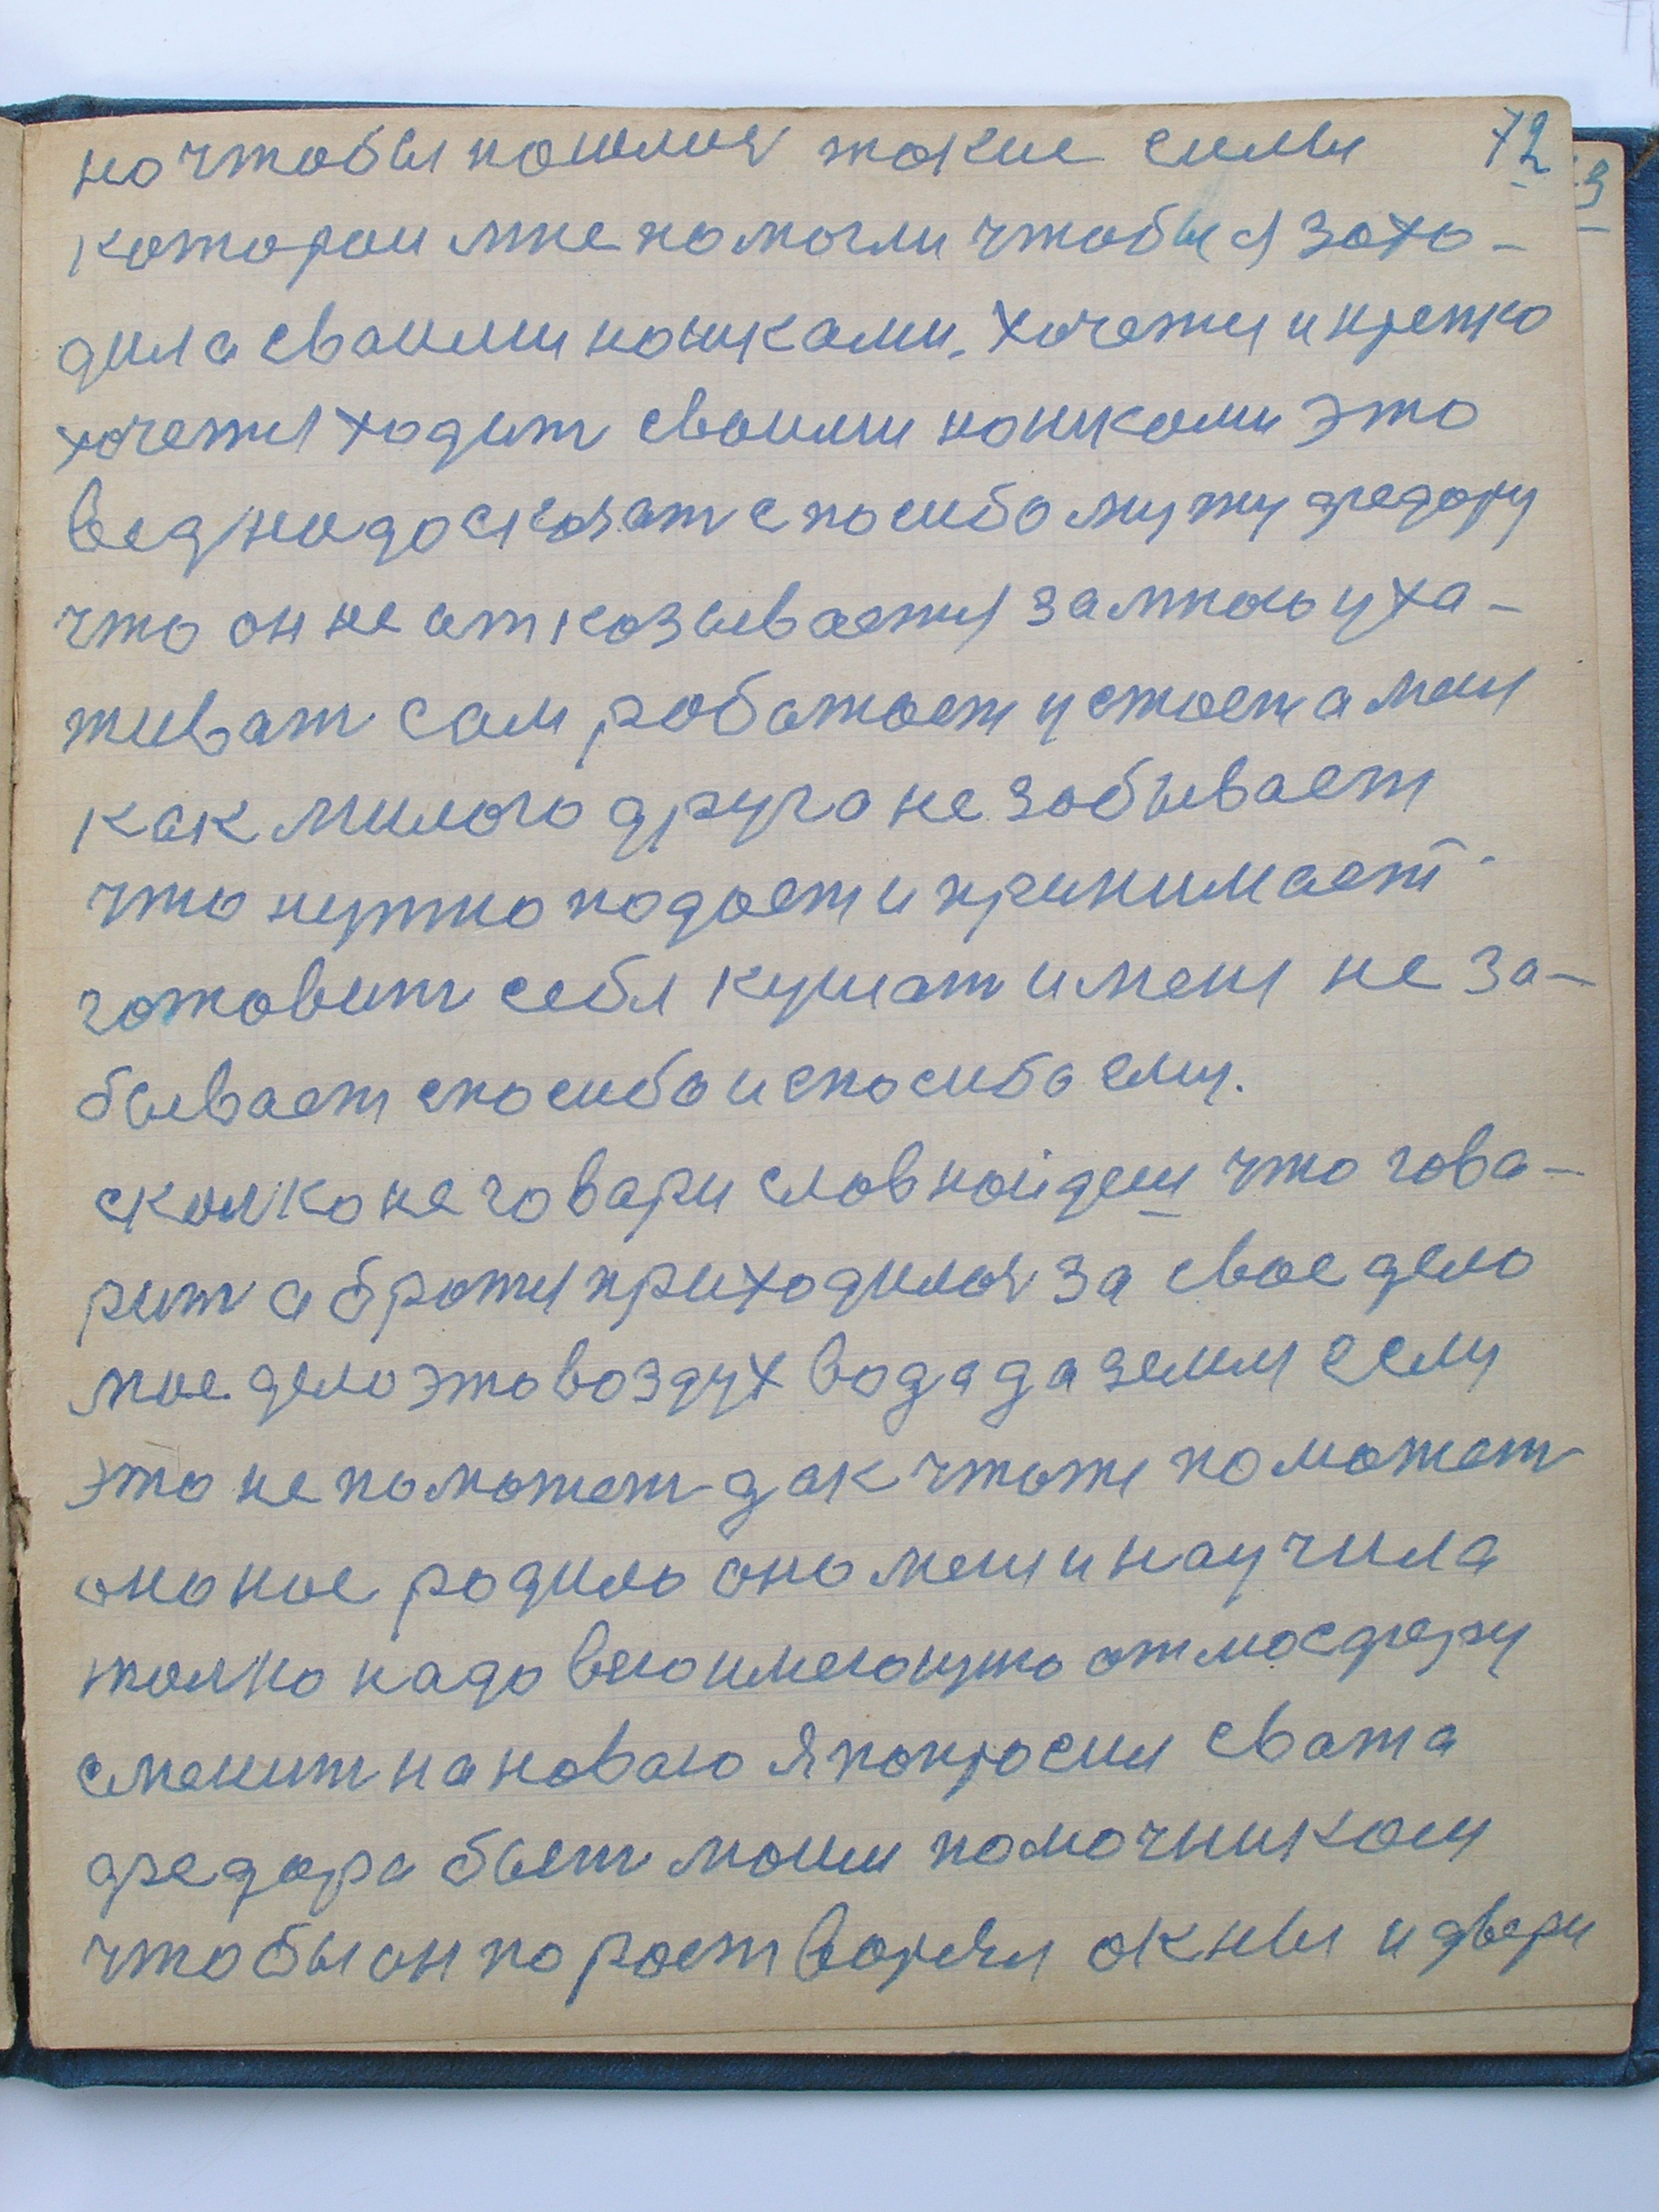 но чтобы нашлися такие силы 72
каторои мне помогли чтобы я захо-
дила сваими ношками. хочетя и крепко
хочетя ходит сваими ношками это
вед надо сказат спосибо мужу федору
что он не атказываетя за мною уха-
живат сам работает устает а меня
как милого друга не забывает
что нужно подает и принимает.
готовит себя кушат и меня не за-
бывает спосибо и спосибо ему.
сколко не говари слов найдеш что гова-
рит а братя приходился за свое дело
мое дело это воздух вода да земля если
это не поможет дак чтоже поможет
оно нас родило оно меня и научила
толко надо всю имеющую атмосферу
сменит на новаю Я попросил свата
федора быт моим помочником
чтобы он по растворял окны и двери
3